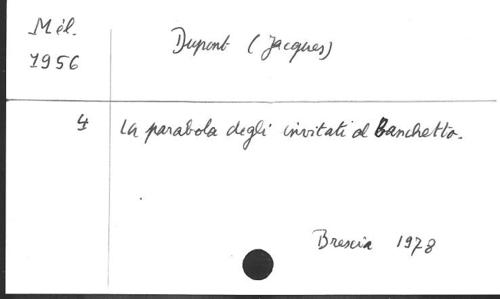 Mél.
1956
Dupont (Jacques)
4
La parabola degli invitati al Banchetto.
Brescia 1978